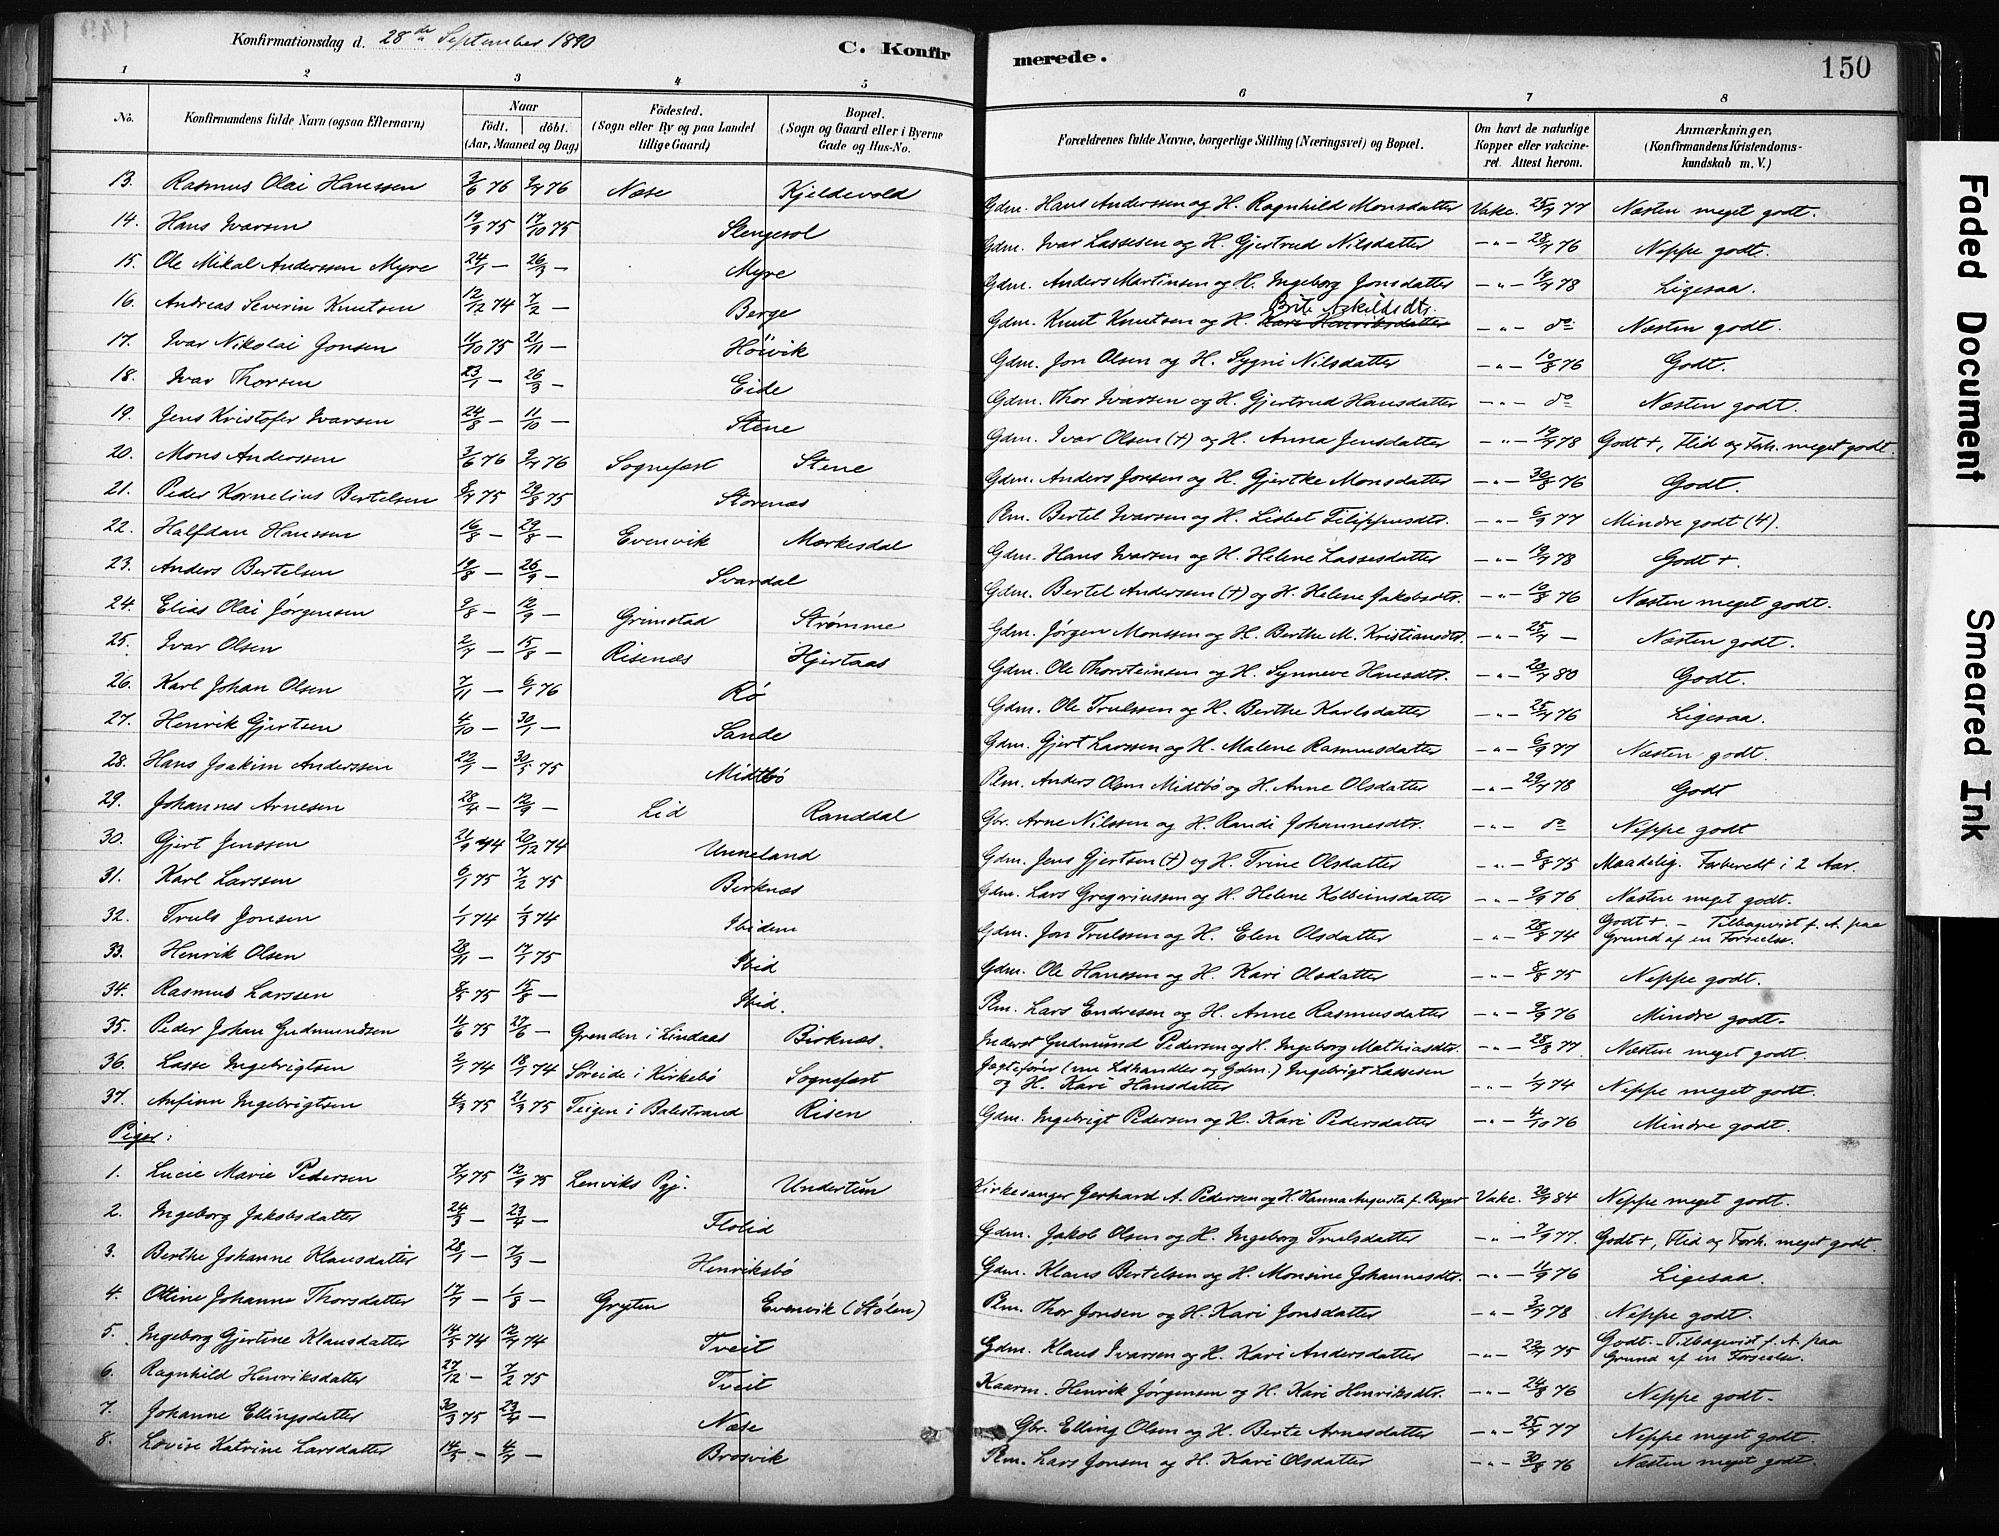 Konfirmationsdag d. 28de September 1890
C. Konfirmerede.
150
1 2 3 4 5 6 7 8
No. Konfirmandens fulde Navn (ogsaa Efternavn) Naar födt. döbt. (Aar, Maaned og Dag) Födested. (Sogn eller By og paa Landet tillige Gaard) Bopæl. (Sogn og Gaard eller i Byerne Gade og Hus-No. Forældrenes fulde Navne, borgerlige Stilling (Næringsvei) og Bopæl. Om havt de naturlige Kopper eller vakcineret. Attest herom. Anmærkninger, (Konfirmandens Kristendomskundskab m. V.)
13. Rasmus Olai Hanssen 3/6 76 9/7 76 Næse Kjeldevold Gdm. Hans Anderssen og H. Ragnhild Monsdatter Vakc. 25/7 77 Næsten meget godt.
14. Hans Ivarsen 19/9 75 17/10 75 Stengesol Gdm. Ivar Lassesen og H. Gjertrud Nilsdatter -"- 28/7 76 Neppe godt.
15. Ole Mikal Anderssen Myre 24/1 — 26/3 — Myre Gdm. Anders Martinsen og H. Ingeborg Jonsdatter -"- 19/7 78 Ligesaa.
16. Andreas Severin Knutsen 12/12 74 7/2 — Berge Gdm. Knut Knutsen og H. Kari Henriksdatter Brite Askildsdtr. -"- do Næsten godt.
17. Ivar Nikolai Jonsen 11/10 75 21/11 — Höivik Gdm. Jon Olsen og H. Sygni Nilsdatter -"- 10/8 76 Godt.
18. Ivar Thorsen 23/1 — 26/3 — Eide Gdm. Thor Ivarsen og H. Gjertrud Hansdatter -"- do Næsten godt.
19. Jens Kristofer Ivarsen 24/8 — 11/10 — Stene Gdm. Ivar Olsen (+) og H. Anna Jensdatter -"- 19/7 78 Godt +, Flid og Forh. meget godt.
20. Mons Anderssen 3/6 76 9/7 76 Sognefest Stene Gdm. Anders Jonsen og H. Gjertke Monsdatter -"- 30/8 76 Godt.
21. Peder Kornelius Bertelsen 8/7 75 29/8 75 Storenæs Plm. Bertel Ivarsen og H. Lisbet Filippusdtr. -"- 6/9 77 Mindre godt (4).
22. Halfdan Hanssen 16/8 — 29/8 — Evenvik Mærkesdal Gdm. Hans Ivarsen og H. Helene Lassesdatter -"- 19/7 78 Godt +.
23. Anders Bertelsen 19/8 — 26/9 — Svardal Gdm. Bertel Anderssen (+) og H. Helene Jakobsdtr. -"- 10/8 76 Næsten meget godt.
24. Elias Olai Jørgensen 9/8 — 12/9 — Grimstad Strømme Gdm. Jørgen Monssen og H. Berthe M. Kristiansdtr. -"- 25/7 — Næsten godt.
25. Ivar Olsen 2/7 — 15/8 — Risenæs Hjertaas Gdm. Ole Thorsteinsen og H. Synneve Hansdtr. -"- 20/7 80 Godt.
26. Karl Johan Olsen 7/11 — 6/1 76 Rø Gdm. Ole Trulssen og H. Berthe Karlsdatter -"- 25/7 76 Ligesaa.
27. Henrik Gjertsen 4/10 — 30/1 — Sande Gdm. Gjert Larssen og H. Malene Rasmusdatter -"- 6/9 77 Næsten godt.
28. Hans Joakim Anderssen 20/1 — 30/5 75 Midtbö Plm. Anders Olsen Midtbö og H. Anne Olsdatter -"- 29/7 78 Godt
29. Johannes Arnesen 28/4 — 12/9 — Lid Randdal Gbr. Arne Nilssen og H. Randi Johannesdtr. -"- do Neppe godt
30. Gjert Jenssen 21/9 74 20/12 74 Unneland Gdm. Jens Gjertsen (+) og H. Trine Olsdatter -"- 8/8 75 Maadelig. Forberedt i 2 Aar.
31. Karl Larssen 6/1 75 7/2 75 Birknæs Gdm. Lars Gregoriussen og H. Helene Kolbeinsdatter -"- 9/9 76 Næsten meget godt.
32. Truls Jonsen 1/1 74 1/3 74 Ibidem Gdm. Jon Trulssen og H. Elen Olsdatter -"- 28/8 74 Godt +. – Tilbagevist f. A. paa Grund af en Forseelse.
33. Henrik Olsen 28/11 — 17/1 75 Ibid Gdm. Ole Hanssen og H. Kari Olsdatter -"- 8/8 75 Neppe godt.
34. Rasmus Larssen 8/5 75 15/8 — Ibid. Plm. Lars Endresen og H. Anne Rasmusdatter -"- 9/9 76 Mindre godt.
35. Peder Johan Gudmundsen 11/6 75 27/6 — Grenden i Lindaas Birknæs. Inderst Gudmund Pedersen og H. Ingeborg Mathiasdtr. -"- 28/8 77 Næsten meget godt.
36. Lasse Ingebrigtsen 2/1 74 18/1 74 Søreide i Kirkebö Sognefest Jægtefører (nu Ldhandler og Gdm.) Ingebrigt Lassesen og H. Kari Hansdatter -"- 1/7 74 Neppe meget godt.
37. Anfinn Ingebrigtsen 4/3 75 21/3 75 Teigen i Balestrand Risen Gdm. Ingebrigt Pedersen og H. Kari Pedersdatter -"- 4/10 76 Mindre godt.
Piger:
1. Lucie Marie Pedersen 7/7 75 12/9 75 Lenviks Pgj. Undertun Kirkesanger Gerhard A. Pedersen og H. Hanna Augusta f. Beyer Vakc. 20/9 84 Neppe meget godt.
2. Ingeborg Jakobsdatter 24/3 — 23/4 — Flolid Gdm. Jakob Olsen og H. Ingeborg Trulsdatter " — 7/9 77. Godt +, Flid og Forh. meget godt.
3. Berthe Johanne Klausdatter 28/1 — 7/3 — Henriksbö Gdm. Klaus Bertelsen og H. Monsine Johannesdtr. -"- 11/9 76 Ligesaa.
4. Ottine Johanne Thorsdatter 17/7 — 1/8 — Gryten Evenvik (Stølen) Plm. Thor Jonsen og H. Kari Jonsdatter -"- 3/7 78 Neppe godt.
5. Ingeborg Gjertine Klausdatter 14/5 74 12/7 74 Tveit Gdm. Klaus Ivarsen og H. Kari Andersdatter -"- 22/7 75 Godt. – Tilbagevist f. A. paa Grund af en Forseelse.
6. Ragnhild Henriksdatter 27/12 — 7/2 75 Tveit Kaarm. Henrik Jørgensen og H. Kari Henriksdtr. -"- 24/8 76 Neppe godt.
7. Johanne Ellingsdatter 30/3 75 23/4 — Næse Gbr. Elling Olsen og H. Berte Arnesdatter -"- 25/7 77 Neppe meget godt.
8. Lovise Katrine Larsdatter 14/5 — 4/7 — Brosvik Plm. Lars Jonsen og H. Kari Olsdatter -"- 30/8 76 Næsten meget godt.
Faded Document
Smeared Ink